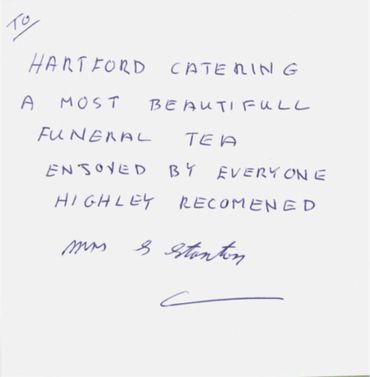 TO
HARTFORD CATERING
A MOST BEAUTIFULL
FUNERAL TEA
ENJOYED BY EVERYONE
HIGHLEY RECOMENED
Mrs S Stanton